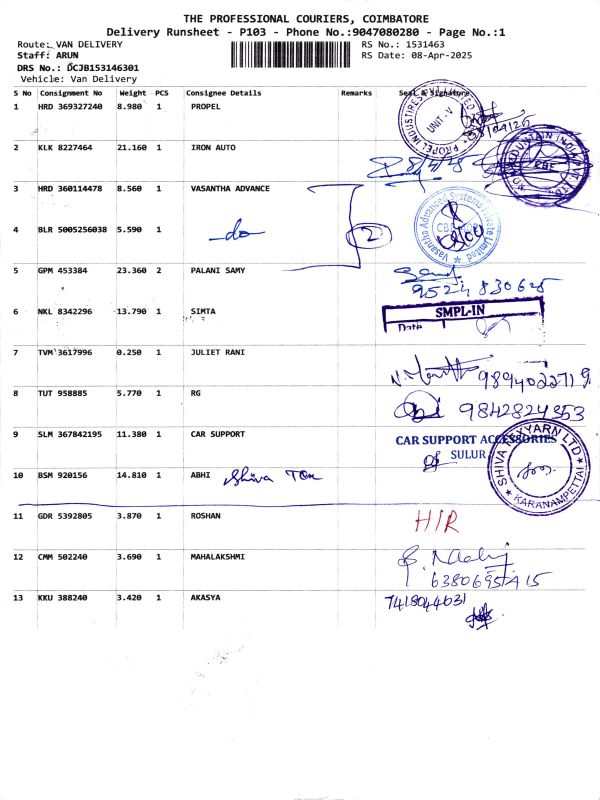 THE PROFESSIONAL COURIERS, COIMBATORE
Delivery Runsheet - P103 - Phone No.:9047080280 - Page No.:1
Route: VAN DELIVERY RS No.: 1531463
Staff: ARUN RS Date: 08-Apr-2025
DRS No.: DCJB153146301
Vehicle: Van Delivery
S No Consignment No Weight PCS Consignee Details Remarks Seal & Signature
1 HRD 369327240 8.980 1 PROPEL
PROPEL INDUSTIRES UNIT-V
2 KLK 8227464 21.160 1 IRON AUTO
8/4/25
CBE
3 HRD 360114478 8.560 1 VASANTHA ADVANCE
Vasantha Advanced Systems Private Limited
4 BLR 5005256038 5.590 1 do 2
5 GPM 453384 23.360 2 PALANI SAMY
9524830625
6 NKL 8342296 13.790 1 SIMTA
SMPL-IN
Date
7 TVM 3617996 0.250 1 JULIET RANI
9894022719
8 TUT 958885 5.770 1 RG
9842824353
9 SLM 367842195 11.380 1 CAR SUPPORT
CAR SUPPORT ACCESSORIES
SULUR
10 BSM 920156 14.810 1 ABHI Shiva Tex
SHIVA TEXYARN LTD KARANAMPETTAI
11 GDR 5392805 3.870 1 ROSHAN H/R
12 CMM 502240 3.690 1 MAHALAKSHMI
6380695415
13 KKU 388240 3.420 1 AKASYA 7418044631